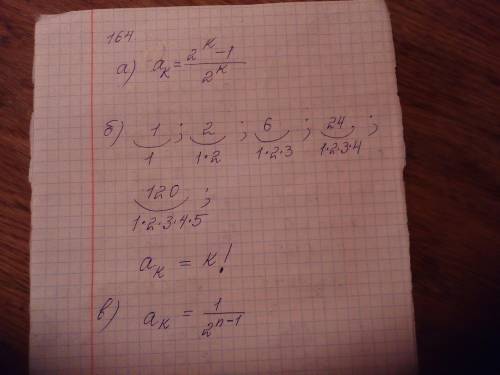 164
а) aₖ = (2ᵏ − 1)/2ᵏ
б) 1 ; 2 ; 6 ; 24 ;
1 1·2 1·2·3 1·2·3·4
120 ;
1·2·3·4·5
aₖ = k!
в) aₖ = 1/2ⁿ⁻¹